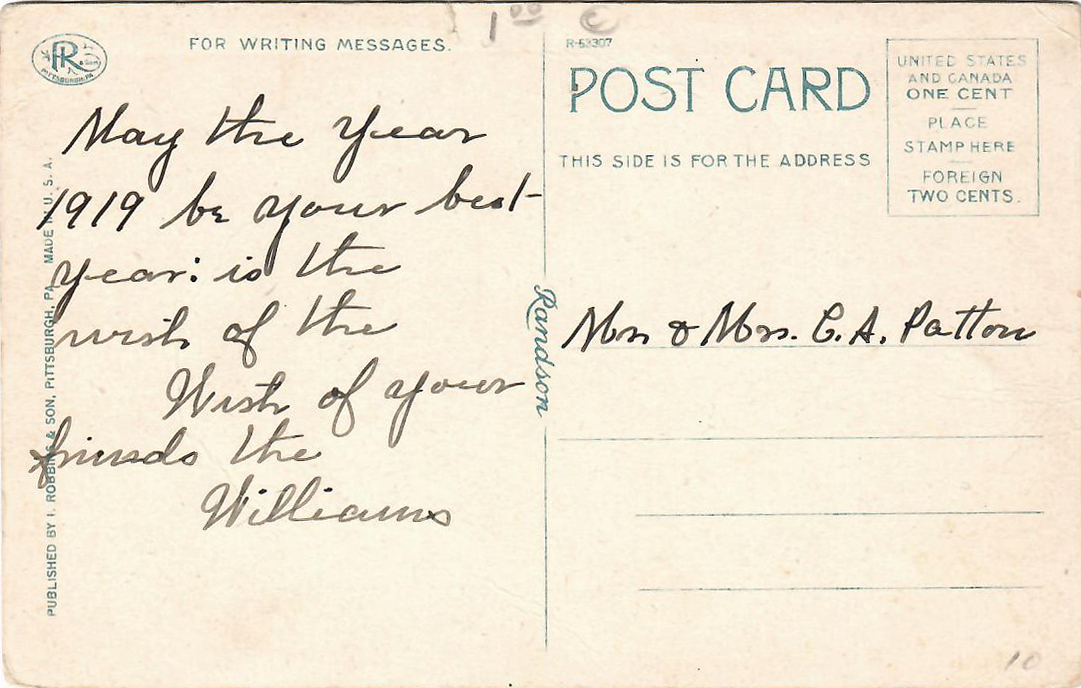 1 00 C
FOR WRITING MESSAGES.
PITTSBURGH, PA.
May the year
1919 be your best
year: is the
wish of the
Wish of your
friends the
Williams
PUBLISHED BY I. ROBBINS & SON, PITTSBURGH, PA. MADE IN U. S. A.
Randson
R-53307
POST CARD
THIS SIDE IS FOR THE ADDRESS
UNITED STATES
AND CANADA
ONE CENT
PLACE
STAMP HERE
FOREIGN
TWO CENTS.
Mr & Mrs. C. A. Patton
10